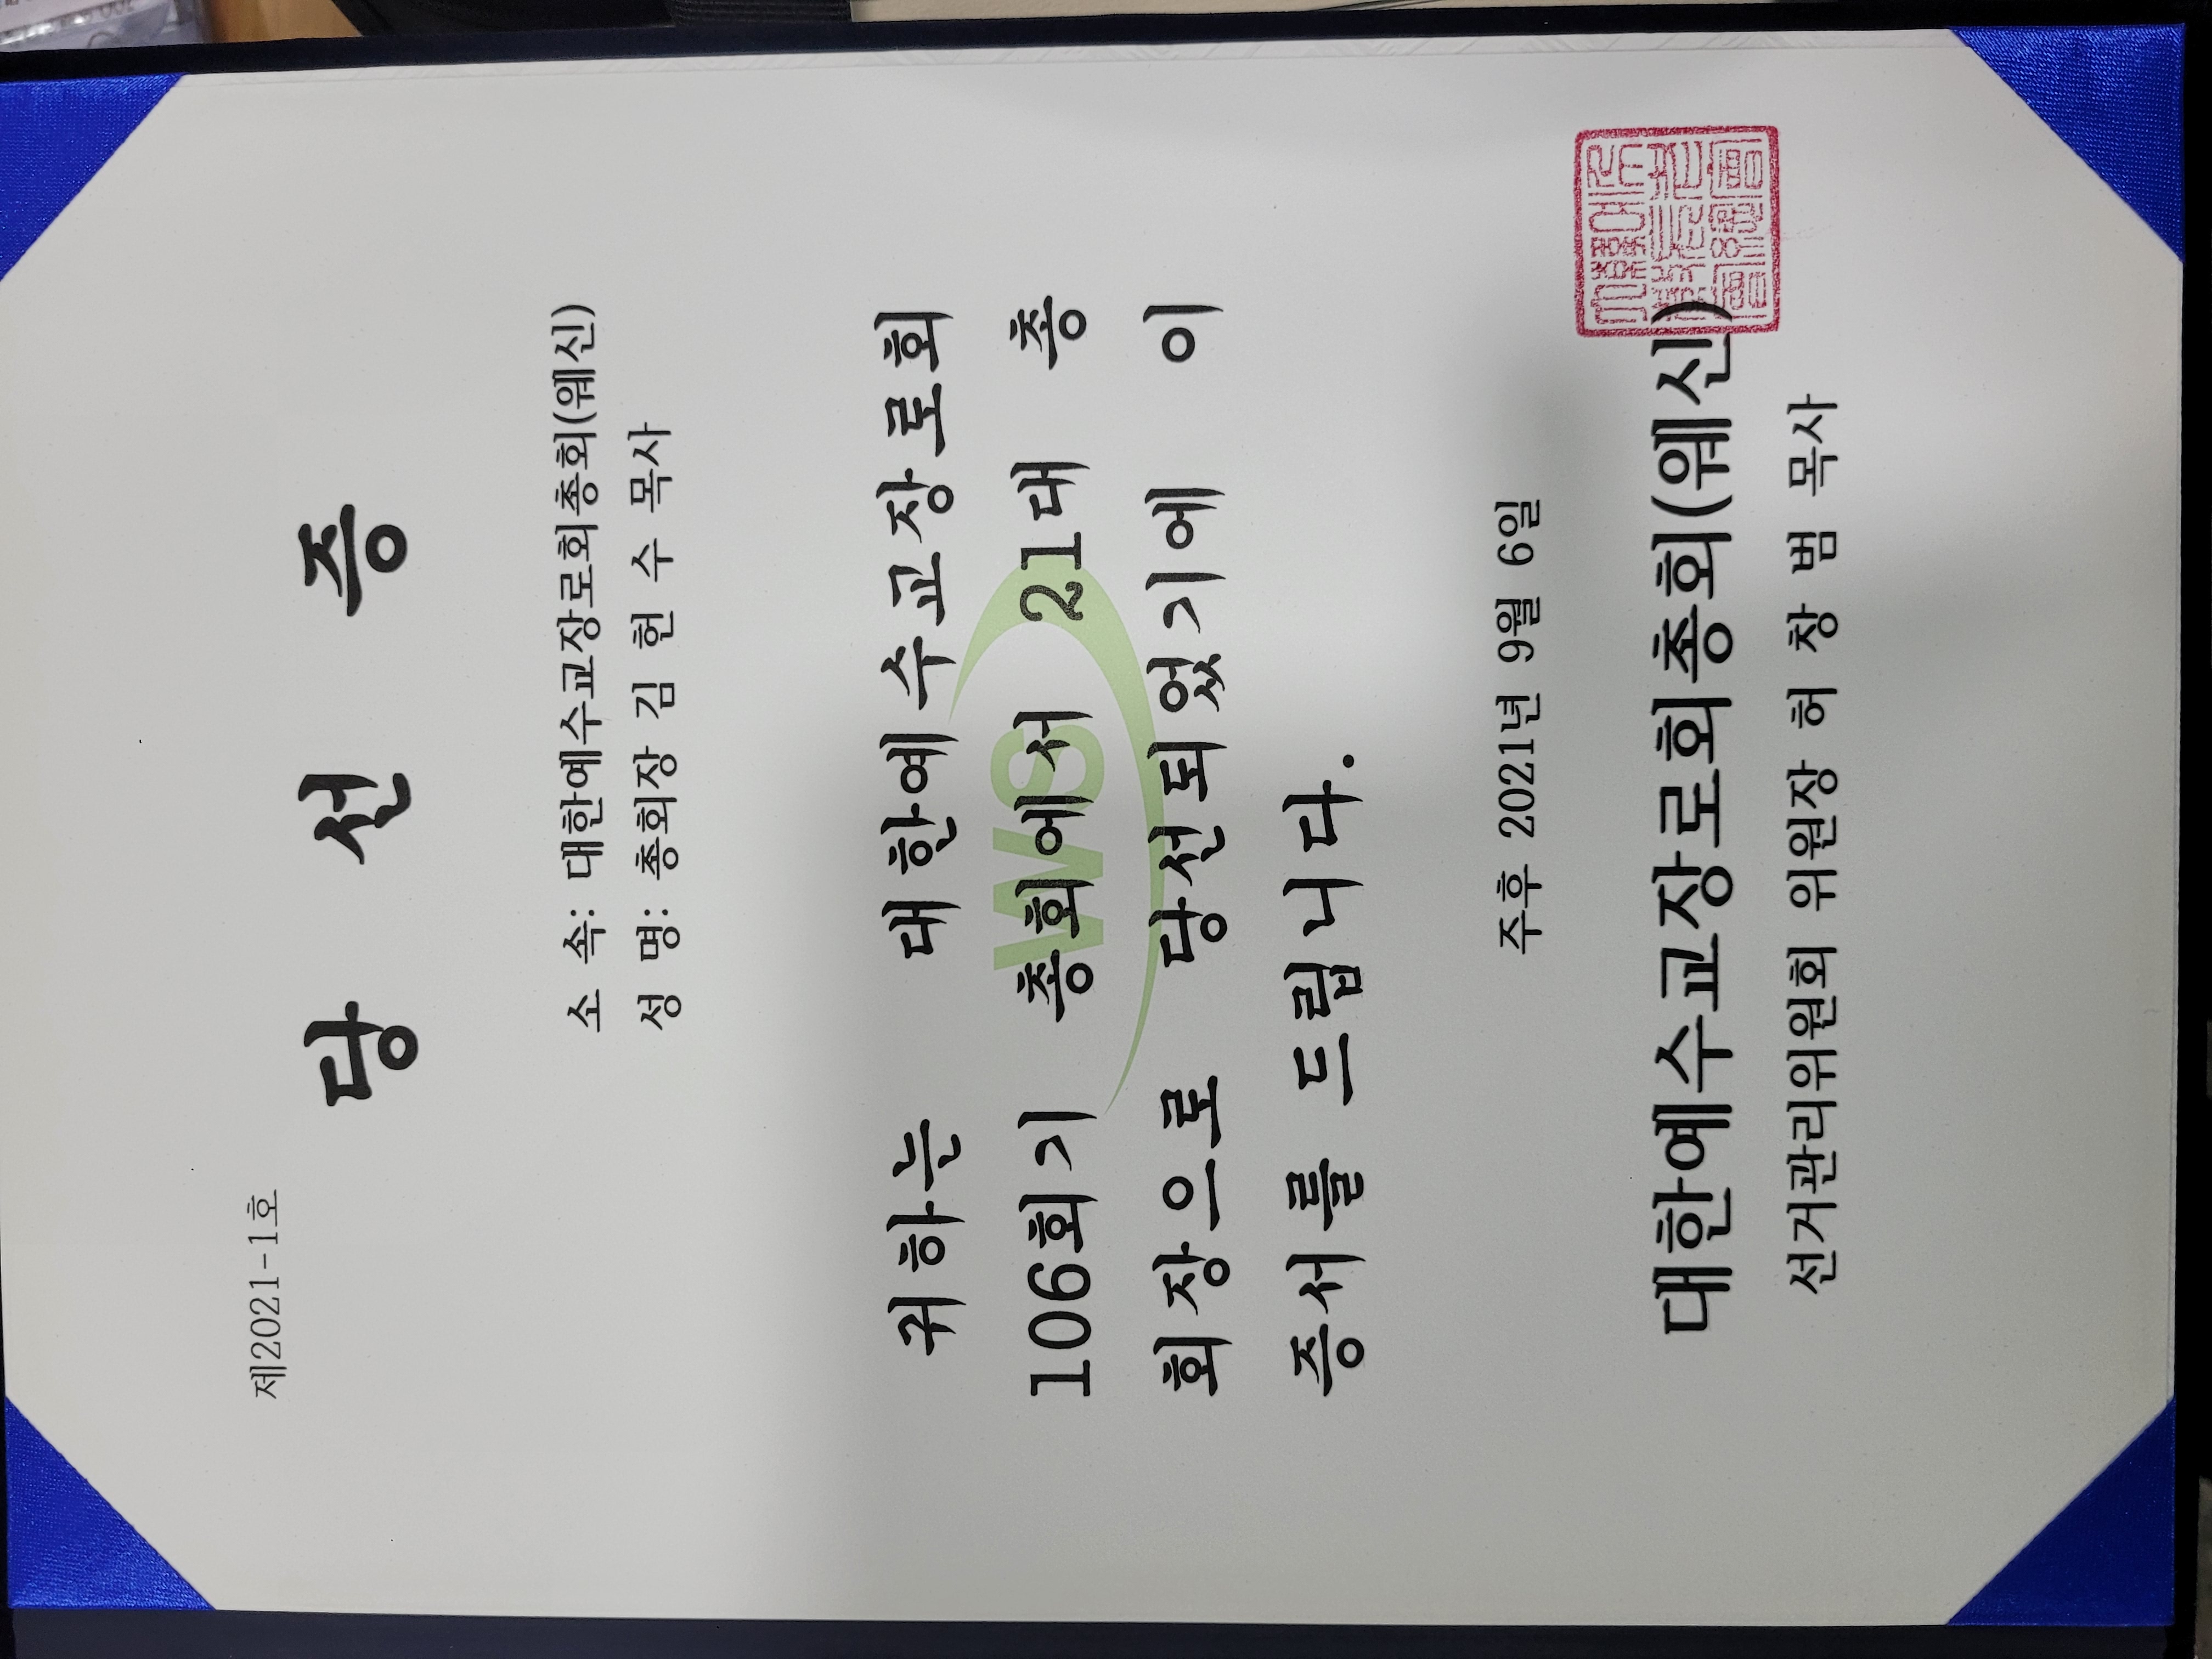 제2021-1호
당 선 증
소 속: 대한예수교장로회총회(웨신)
성 명: 총회장 김 헌 수 목사
귀하는 대한예수교장로회
106회기 총회에서 21대 총
회장으로 당선되었기에 이
증서를 드립니다.
WS
주후 2021년 9월 6일
대한예수교장로회총회(웨신)
선거관리위원회 위원장 허 창 범 목사